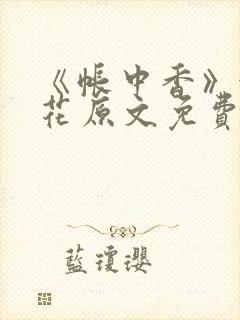 《帳中香》
花原文免費
藍瓊瓔